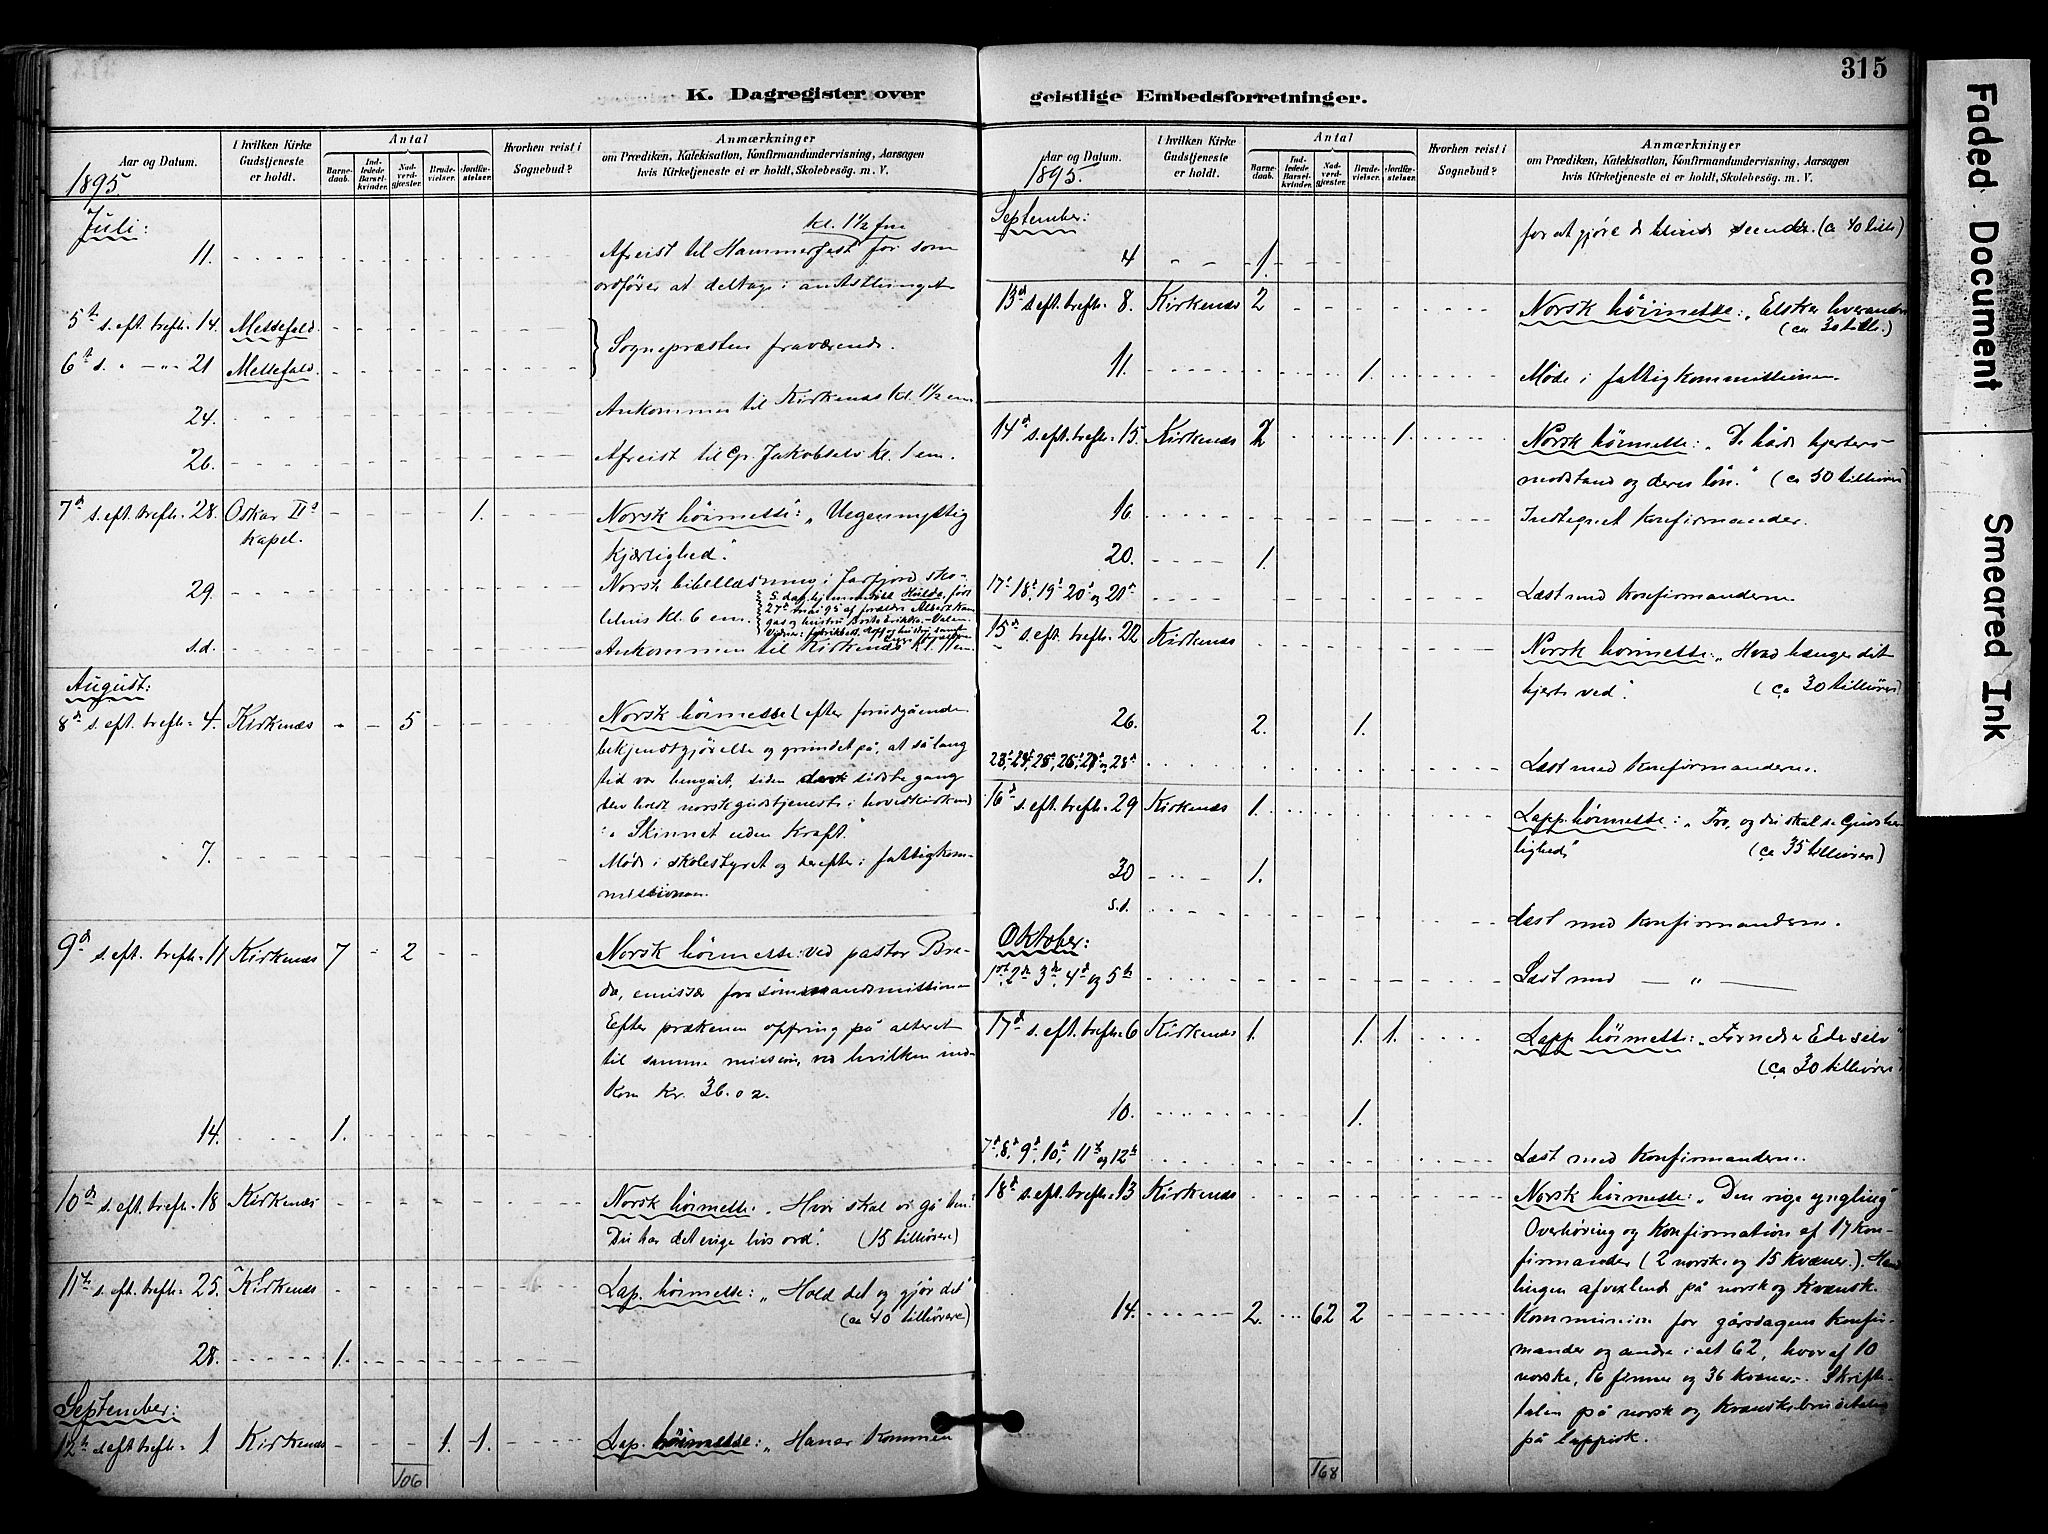 315
K. Dagregister over geistlige Embedsforretninger.
Aar og Datum.
I hvilken Kirke Gudstjeneste er holdt.
Antal
Barnedaab.
Indledede Barselkvinder.
Nadverdgjester.
Brudevielser.
Jordfæstelser.
Hvorhen reist i Sognebud?
Anmærkninger
om Prædiken, Katekisation, Konfirmandundervisning, Aarsagen
hvis Kirketjeneste ei er holdt, Skolebesög. m. V.
1895
Juli:
kl. 1½ fm
11. Afreist til Hammerfest for som
ordfører at deltage i amtstinget
5te s. eft. trefh. 14. Messefald.
Sognepræsten fraværende.
6te s. " — " 21 Messefald.
24. Ankommen til Kirkenæs kl. 1½ em
26. Afreist til Gr. Jakobselv kl. 1 em.
7d s. eft. trefh. 28. Oskar IIs kapel. 1. Norsk høimesse: "Uegennyttig
kjærlighed".
29. Norsk bibellæsning i Jarfjord sko-
lehus kl. 6 em.
s.d. Ankommen til Kirkenæs kl. 11 em
August:
8d s. eft. trefh. 4. Kirkenæs - - 5 Norsk høimesse (efter forudgående
bekjendtgjørelse og grundet på, at så lang
tid var hengået, siden sidste gang
blev holdt norsk gudstjeneste i hovedkirken)
: "Skinnet uden kraft."
7. Møde i skolestyret og derefter i fattigkom-
missionen.
9d s. eft. trefh. 11 Kirkenæs 7 - 2 Norsk høimesse: ved pastor Bra-
da, emissær for sømandsmissionen
Efter prækenen ofring på alteret
til samme mission, ved hvilken ind-
kom kr. 36.02.
14. 1.
10d s. eft. trefh. 18 Kirkenæs Norsk høimesse: "Hvor skal vi gå hen?
Du har det evige livs ord". (15 tilhørere)
11te s. eft. trefh. 25. Kirkenæs Lap. høimesse: "Hold det og gjør det"
(ca 40 tilhørere)
28. 1.
September:
12te s. eft trefh. 1 Kirkenæs 1. 1. Lap. høimesse: "Han er kommen
106
Aar og Datum.
I hvilken Kirke Gudstjeneste er holdt.
Antal
Barnedaab.
Indledede Barselkvinder.
Nadverdgjester.
Brudevielser.
Jordfæstelser.
Hvorhen reist i Sognebud?
Anmærkninger
om Prædiken, Katekisation, Konfirmandundervisning, Aarsagen
hvis Kirketjeneste ei er holdt, Skolebesög. m. V.
1895.
September:
for at gjøre de blinde seende. (ca 40 tilh)
4 1.
13d s. eft. trefh. 8. Kirkenæs 2 Norsk høimesse: "Elsker hverandre
(ca 30 tilh.)
11. 1. Møde i fattigkommissionen.
14d s. eft. trefh. 15. Kirkenæs 2 1. Norsk høimesse: "De hårde hjerters
modstand og deres løn." (ca 50 tilhørere)
16 Indtegnet konfirmander.
20. 1.
17d 18d 19d 20d og 21d Læst med konfirmanderne.
15d s. eft. trefh. 22 Kirkenæs Norsk høimesse: "Hvad hænger dit
hjerte ved". (ca 30 tilhørere)
26. 2. 1.
23d, 24d, 25d, 26d, 27d og 28d Læst med konfirmanderne.
16d s. eft. trefh. 29 Kirkenæs 1. Lapp. høimesse: "Tro, og du skal se Guds her-
lighed" (ca 35 tilhørere)
30 1.
s.d. Læst med konfirmanderne.
Oktober:
1ste, 2den, 3die, 4d og 5te Læst med — " —
17d s. eft. trefh. 6 Kirkenæs 1. 1. 1. Lapp. høimesse: "Fornedrer Eder selv"
(ca 30 tilhørere)
10. 1.
7d, 8d, 9d, 10d, 11te og 12te Læst med konfirmanderne.
18d s. eft. trefh. 13 Kirkenæs Norsk høimesse: "Den rige yngling"
Overhøring og konfirmation af 17 kon-
firmander (2 norske og 15 kvæner). Hand-
lingen afvexlende på norsk og kvænsk.
14. 2. 62 2 Kommunion for gårsdagens konfir-
mander og andre i alt 62, hvoraf 10
norske, 16 finner og 36 kvæner. Skrifte-
talen på norsk og kvænsk
på lappisk.
168
Faded Document
Smeared Ink